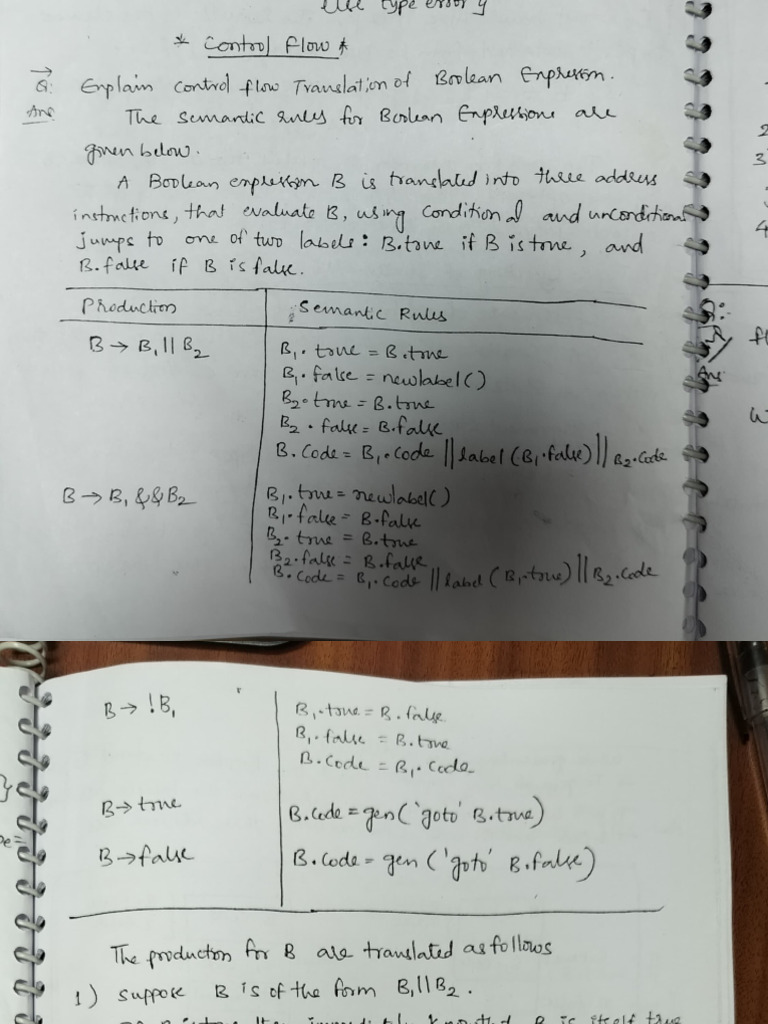 else type error }
* Control Flow *
Q: Explain control flow Translation of Boolean Expression.
Ans The semantic rules for Boolean Expressions are
given below.
A Boolean expression B is translated into three address
instructions, that evaluate B, using conditional and unconditional
jumps to one of two labels: B.true if B is true, and
B.false if B is false.
Production Semantic Rules
B → B₁ || B₂ B₁.true = B.true
B₁.false = newlabel()
B₂.true = B.true
B₂.false = B.false
B.code = B₁.code || label (B₁.false) || B₂.code
B → B₁ && B₂ B₁.true = newlabel()
B₁.false = B.false
B₂.true = B.true
B₂.false = B.false
B.code = B₁.code || label (B₁.true) || B₂.code
B → !B₁ B₁.true = B.false
B₁.false = B.true
B.code = B₁.code
B → true B.code = gen('goto' B.true)
B → false B.code = gen('goto' B.false)
The production for B are translated as follows
1) suppose B is of the form B₁ || B₂.
B is itself true
2
3
4
Q:
Ans